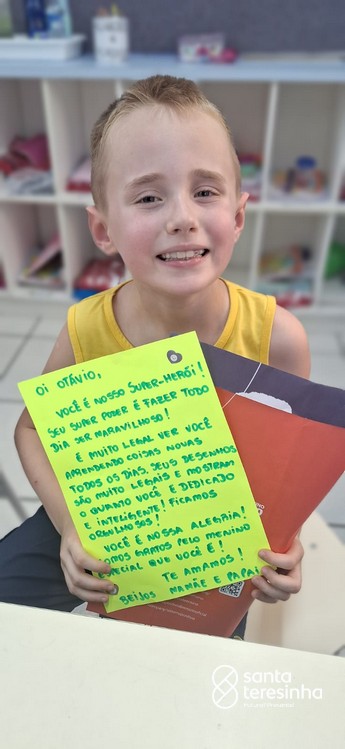 OI OTÁVIO,
VOCÊ É NOSSO SUPER-HERÓI!
SEU SUPER PODER É FAZER TODO
DIA SER MARAVILHOSO!
É MUITO LEGAL VER VOCÊ
APRENDENDO COISAS NOVAS
TODOS OS DIAS. SEUS DESENHOS
SÃO MUITO LEGAIS E MOSTRAM
O QUANTO VOCÊ É DEDICADO
E INTELIGENTE! FICAMOS
ORGULHOSOS!
VOCÊ É NOSSA ALEGRIA!
SOMOS GRATOS PELO MENINO
ESPECIAL QUE VOCÊ É!
TE AMAMOS!
BEIJOS MAMÃE E PAPAI
santa
teresinha